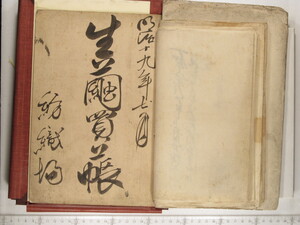 明治十九年七月
生繭買帳
紡織場